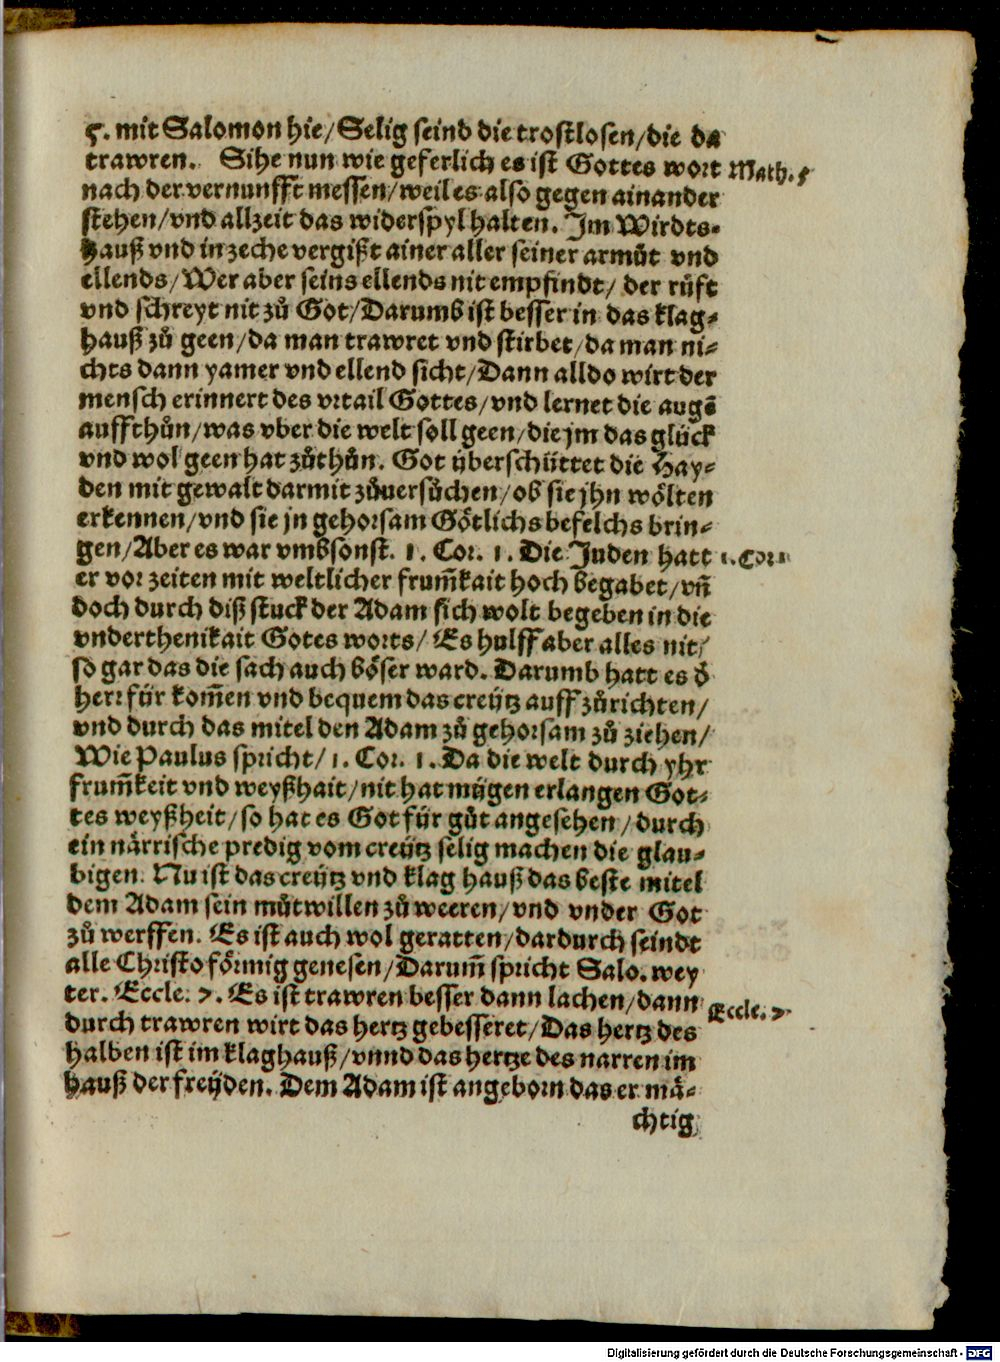 5. mit Salomon hie/Selig seind die trostlosen/die da
trawren. Sihe nun wie geferlich es ist Gottes wort
Math. 5
nach der vernunfft messen/weil es also gegen ainander
stehen/vnd allzeit das widerspyl halten. Im Wirdts-
hauß vnd in zeche vergißt ainer aller seiner armůt vnd
ellends/Wer aber seins ellends nit empfindt/ der růft
vnd schreyt nit zů Got/Darumb ist besser in das klag-
hauß zů geen/da man trawret vnd stirbet/da man ni-
chts dann yamer vnd ellend sicht/Dann alldo wirt der
mensch erinnert des vrtail Gottes/vnd lernet die augē
auffthůn/was vber die welt soll geen/die jm das glück
vnd wol geen hat zůthůn. Got überschüttet die Hay-
den mit gewalt darmit zůuersůchen/ob sie jhn wölten
erkennen/vnd sie jn gehorsam Götlichs befelchs brin-
gen/Aber es war vmbsonst. 1. Cor. 1. Die Juden hatt
1. Cor. 1
er vor zeiten mit weltlicher frum̄kait hoch begabet/vn̄
doch durch diß stuck der Adam sich wolt begeben in die
vnderthenikait Gotes worts/ Es hulff aber alles nit/
so gar das die sach auch böser ward. Darumb hatt es d̕
herr für kom̄en vnd bequem das creütz auff zůrichten/
vnd durch das mitel den Adam zů gehorsam zů ziehen/
Wie Paulus spricht/ 1. Cor. 1. Da die welt durch yhr
frum̄keit vnd weyßhait/nit hat mügen erlangen Got-
tes weyßheit/so hat es Got für gůt angesehen/durch
ein närrische predig vom creütz selig machen die glau-
bigen. Nu ist das creütz vnd klag hauß das beste mitel
dem Adam sein můtwillen zů weeren/vnd vnder Got
zů werffen. Es ist auch wol geratten/dardurch seindt
alle Christoförmig genesen/Darum̄ spricht Salo. wey
ter. Eccle. 7. Es ist trawren besser dann lachen/dann
Eccle. 7
durch trawren wirt das hertz gebesseret/Das hertz des
halben ist im klaghauß/vnnd das hertze des narren im
hauß der freyden. Dem Adam ist angeborn das er mä-
chtig
Digitalisierung gefördert durch die Deutsche Forschungsgemeinschaft - DFG